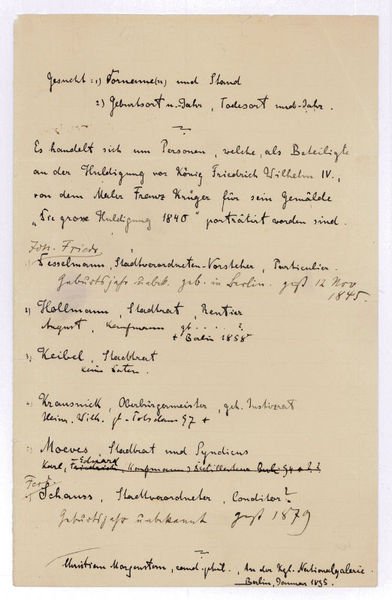 Gesucht: 1) Vorname(n) und Stand
2) Geburtsort u. Jahr, Todesort und Jahr.
Es handelt sich um Personen, welche, als Beteiligte
an der Huldigung vor König Friedrich Wilhelm IV.,
von dem Maler Franz Krüger für sein Gemälde
„Die grosse Huldigung 1840" porträtirt worden sind.
Joh. Friedr.
Desselmann, Stadtverordneten-Vorsteher, Particulier.
Geburtsjahr unbek. geb. in Berlin. gest 12 Nov
1845.
2) Hollmann, Stadtrat, Rentier
August, Kaufmann gb. . . . . ?
+ Berlin 1858
3) Keibel, Stadtrat
kein Daten.
Krausnick, Oberbürgermeister, geh. Justizrat
Heinr. Wilh. gb. Potsdam 97 +
Moeves, Stadtrat und Syndicus
Karl, Eduard
Schauss, Stadtverordneter, Conditor?
Geburtsjahr unbekannt gest 1879
Christian Morgenstern, cand. phil., An der Kgl. Nationalgalerie.
Berlin, Januar 1895.